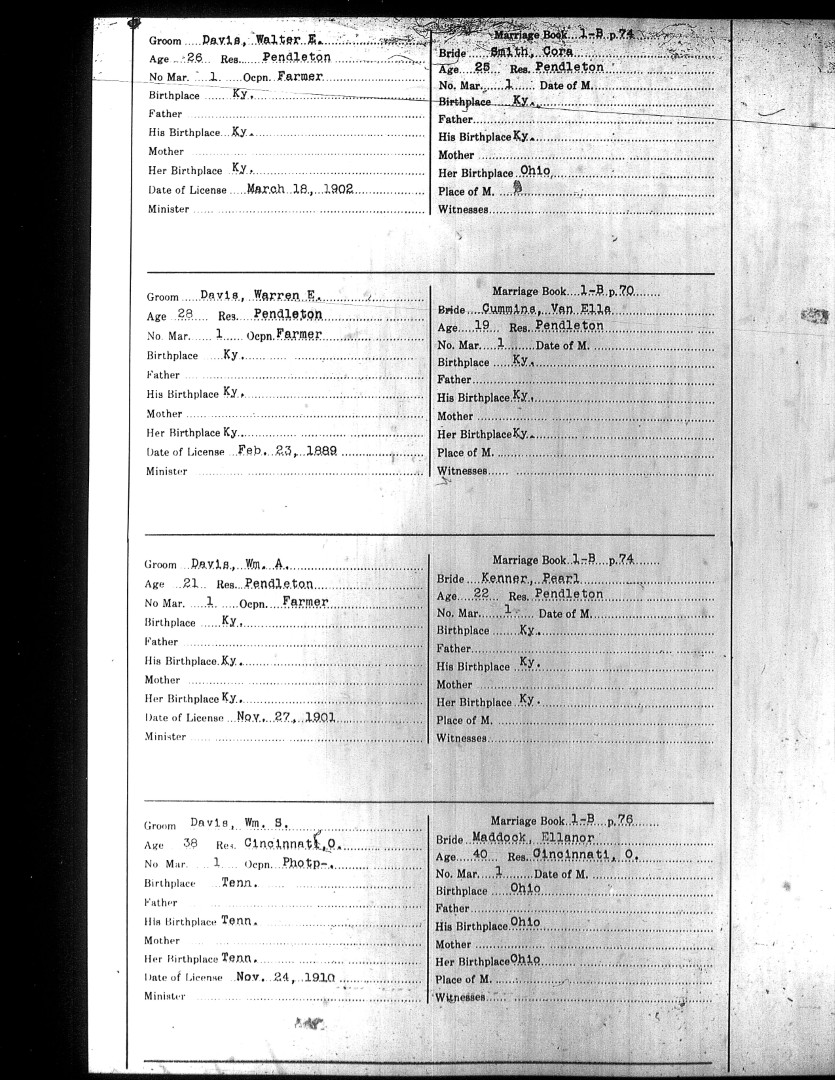 Groom Davis, Walter E.
Age 26 Res. Pendleton
No Mar. 1 Ocpn. Farmer
Birthplace Ky.
Father
His Birthplace Ky.
Mother
Her Birthplace Ky.
Date of License March 18, 1902
Minister
Marriage Book 1-B p.74
Bride Smith, Cora
Age 25 Res. Pendleton
No. Mar. 1 Date of M.
Birthplace Ky.
Father
His Birthplace Ky.
Mother
Her Birthplace Ohio
Place of M.
Witnesses
Groom Davis, Warren E.
Age 28 Res. Pendleton
No. Mar. 1 Ocpn. Farmer
Birthplace Ky.
Father
His Birthplace Ky.
Mother
Her Birthplace Ky.
Date of License Feb. 23, 1889
Minister
Marriage Book 1-B p.70
Bride Cummins, Van Ella
Age 19 Res. Pendleton
No. Mar. 1 Date of M.
Birthplace Ky.
Father
His Birthplace Ky.
Mother
Her Birthplace Ky.
Place of M.
Witnesses
Groom Davis, Wm. A.
Age 21 Res. Pendleton
No Mar. 1 Ocpn. Farmer
Birthplace Ky.
Father
His Birthplace Ky.
Mother
Her Birthplace Ky.
Date of License Nov. 27, 1901
Minister
Marriage Book 1-B p.74
Bride Kenner, Pearl
Age 22 Res. Pendleton
No. Mar. 1 Date of M.
Birthplace Ky.
Father
His Birthplace Ky.
Mother
Her Birthplace Ky.
Place of M.
Witnesses
Groom Davis, Wm. S.
Age 38 Res. Cincinnati, O.
No Mar. 1 Ocpn. Photp-.
Birthplace Tenn.
Father
His Birthplace Tenn.
Mother
Her Birthplace Tenn.
Date of License Nov. 24, 1910
Minister
Marriage Book 1-B p.76
Bride Maddock, Ellanor
Age 40 Res. Cincinnati, O.
No. Mar. 1 Date of M.
Birthplace Ohio
Father
His Birthplace Ohio
Mother
Her Birthplace Ohio
Place of M.
Witnesses